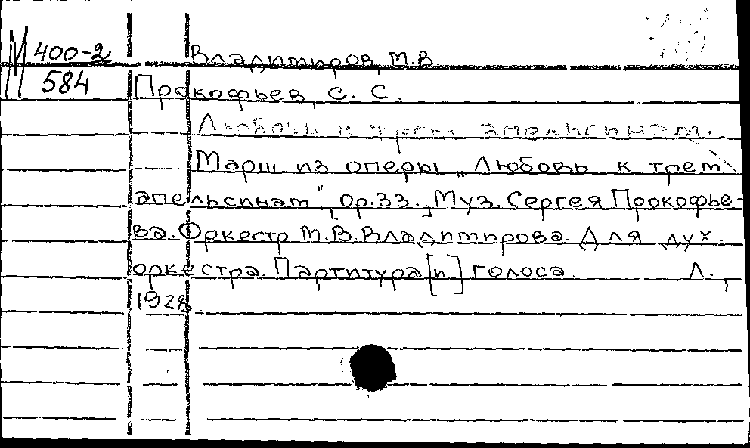 М 400-2 Владимиров, М.В
584 Прокофьев, С. С.
Любовь к трем апельсинам.
Марш из оперы „Любовь к трем
апельсинам", [op.33.] Муз. Сергея Прокофье-
ва. Оркестр М.В.Владимирова. Для дух.
оркестра. Партитура [и] голоса. Л.,
1928